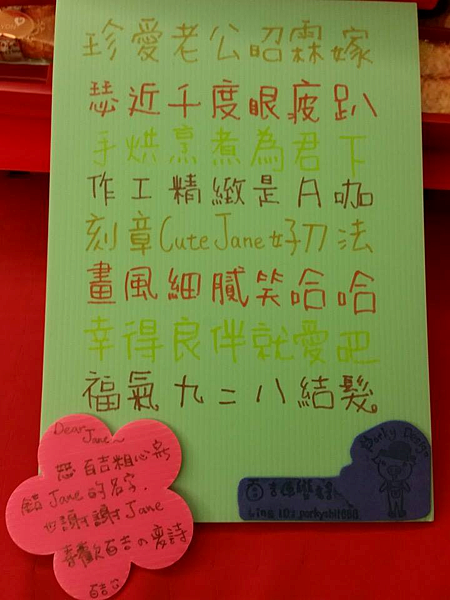 珍愛老公昭霖嫁
瑟近千度眼疲趴
手烘烹煮為君下
作工精緻是A咖
刻章Cute Jane好刀法
畫風細膩笑哈哈
幸得良伴就愛吧
福氣九二八結髮。
Dear
Jane~
恕百吉粗心寫
錯Jane的名字.
也謝謝Jane
喜歡百吉の愛詩
百吉
Porky Design
Line ID: porkys